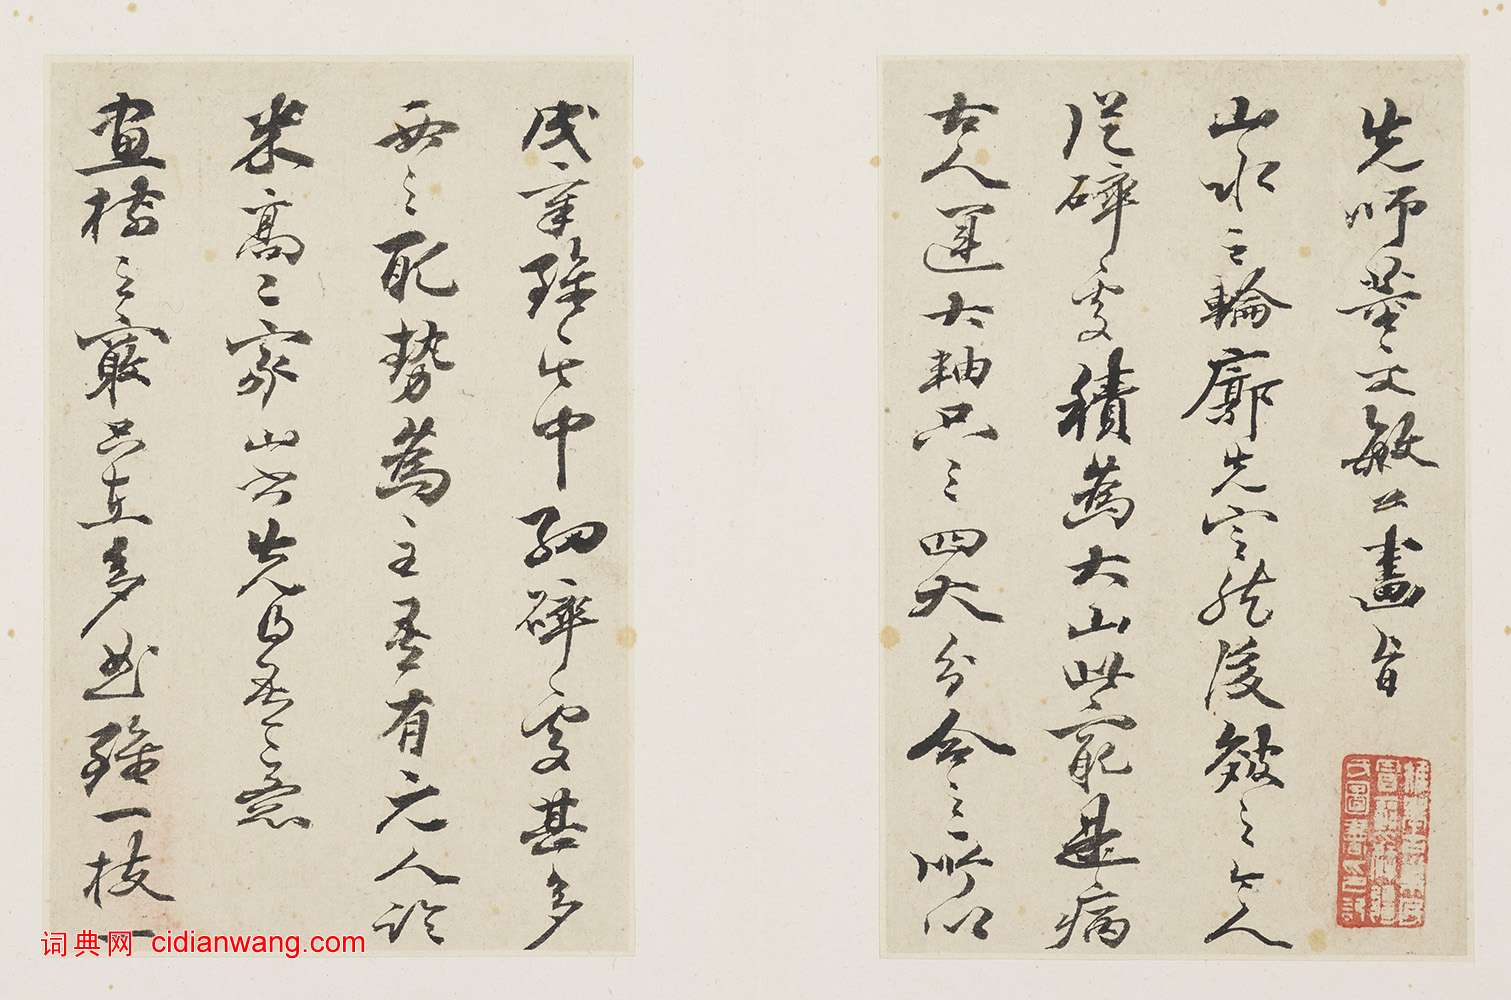 先師董文敏公畫旨
山水之輪廓先定然後皴之今人
從碎處積為大山此最是病
古人運大軸只三四大分合之所以
成章雖其中細碎處甚多
要之取勢為主吾有元人論
米高二家山書先得吾之意
畫樹之竅只在多曲雖一枝一
词典网 cidianwang.com